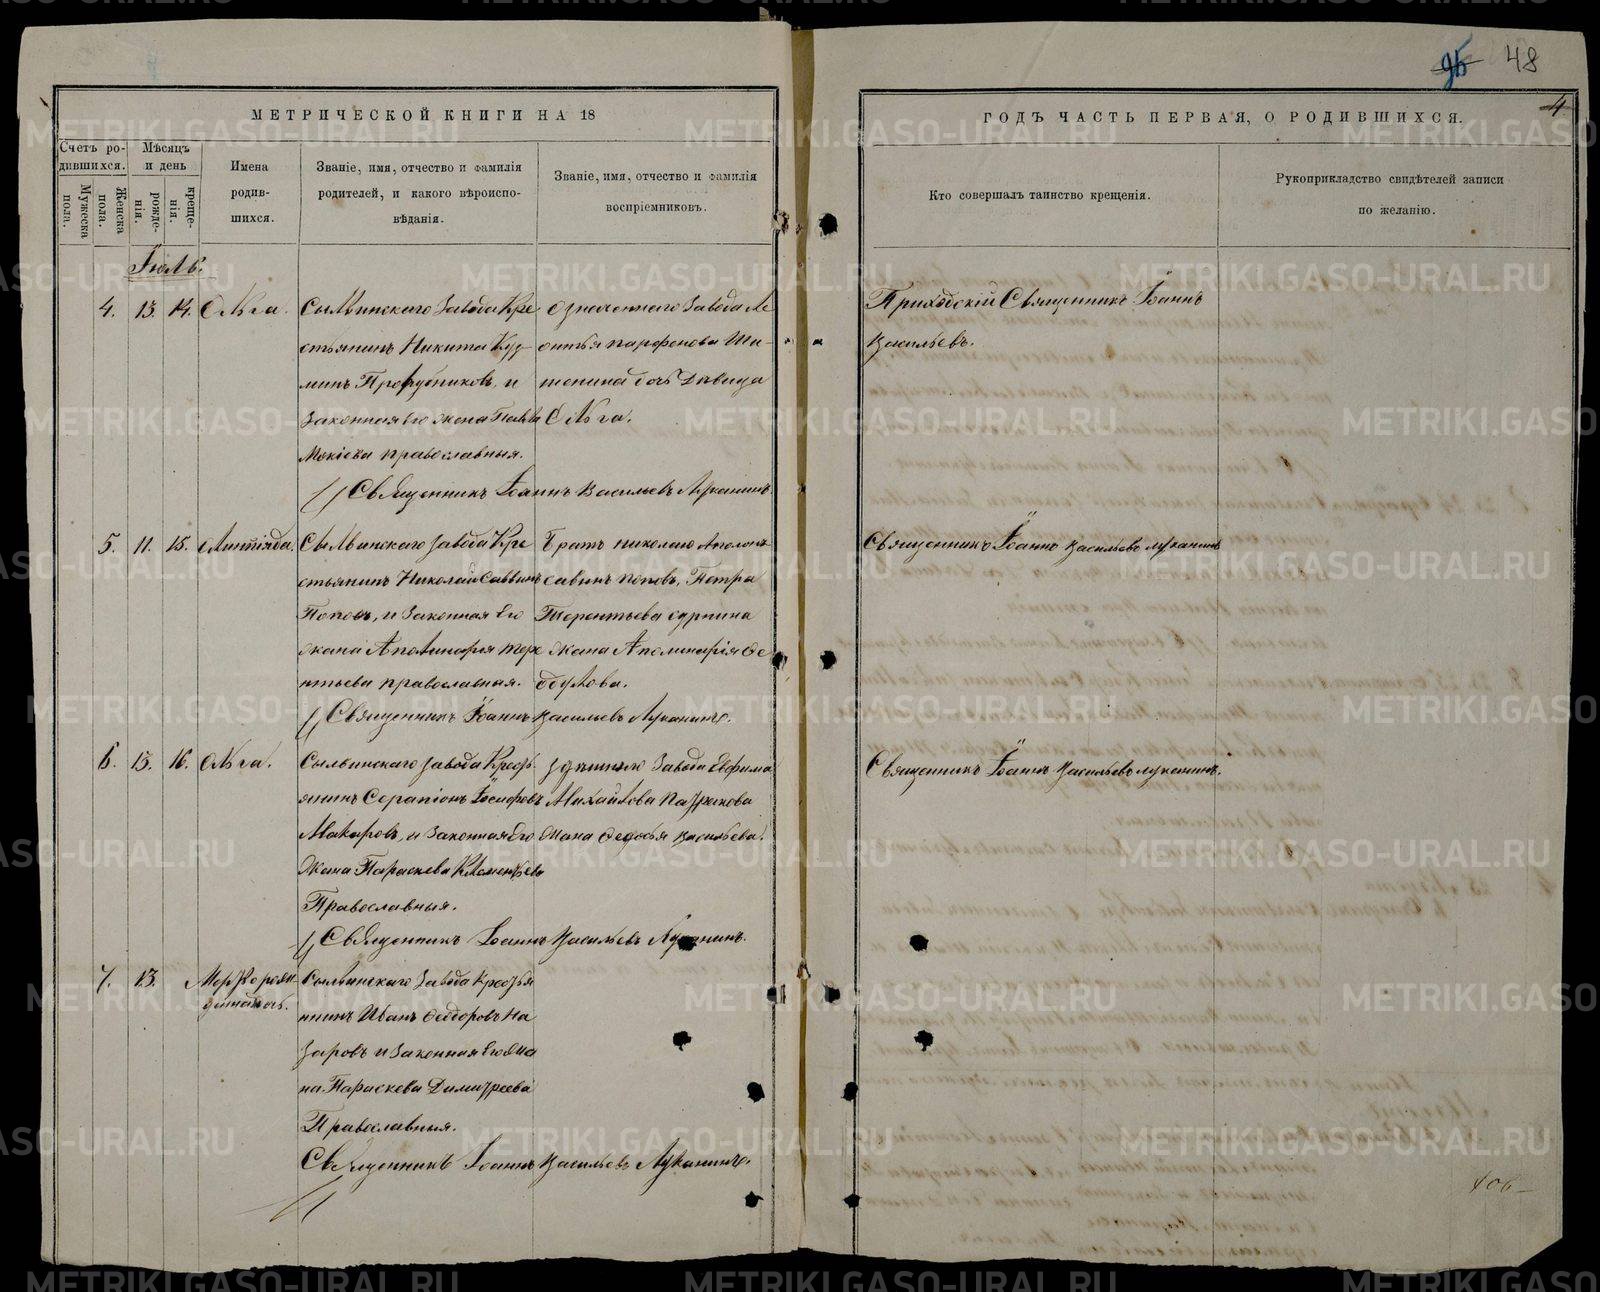 9Б 48
МЕТРИЧЕСКОЙ КНИГИ НА 18
ГОДЪ ЧАСТЬ ПЕРВАЯ, О РОДИВШИХСЯ.
4
Счетъ ро-
дившихся.
Мужеска
пола.
Женска
пола.
Мѣсяцъ
и день
рожде-
нія.
креще-
нія.
Имена
родив-
шихся.
Званіе, имя, отчество и фамилія
родителей, и какого вѣроиспо-
вѣданія.
Званіе, имя, отчество и фамилія
воспріемниковъ.
Кто совершалъ таинство крещенія.
Рукоприкладство свидѣтелей записи
по желанію.
Іюль.
4. 13. 14. Ольга.
Сылвинскаго Завода Кре
стьянинъ Никита Куз
минъ и
Законная его жена Павла
Мокіева православныя.
Означеннаго Завода Ле
онтья Парфенова Ши-
шкина дочь Давица
Ольга.
Приходскій Священникъ Іоаннъ
Васильевъ.
Священникъ Іоаннъ Васильевъ Луканинъ.
5. 11. 15.
Сылвинскаго Завода Кре
стьянинъ Николай Саввинъ
Поповъ, и Законная Его
жена Аполинарія Тере
нтьева православная.
Братъ Николаю Аполонъ
Савинъ Поповъ, Петра
Терентьева
жена Аполинарія Ѳе
одулова.
Священникъ Іоаннъ Васильевъ Луканинъ
Священникъ Іоаннъ Васильевъ Луканинъ.
6. 13. 16. Ольга.
Сылвинскаго Завода Кресть
янинъ Серапіонъ Іосифовъ
Макаровъ, и Законная Его
Жена Параскева Климентьева
Православныя.
Завода Евфима
Михайлова Казакова
Жена Ѳедосья Васильева.
Священникъ Іоаннъ Васильевъ Луканинъ.
Священникъ Іоаннъ Васильевъ Луканинъ.
7. 13.
Сылвинскаго Завода Крестья
нинъ Иванъ Ѳеодоровъ На
заровъ и Законная Его Же
на Параскева Димитреева
Православныя.
Священникъ Іоаннъ Васильевъ Луканинъ.
METRIKI.GASO-URAL.RU